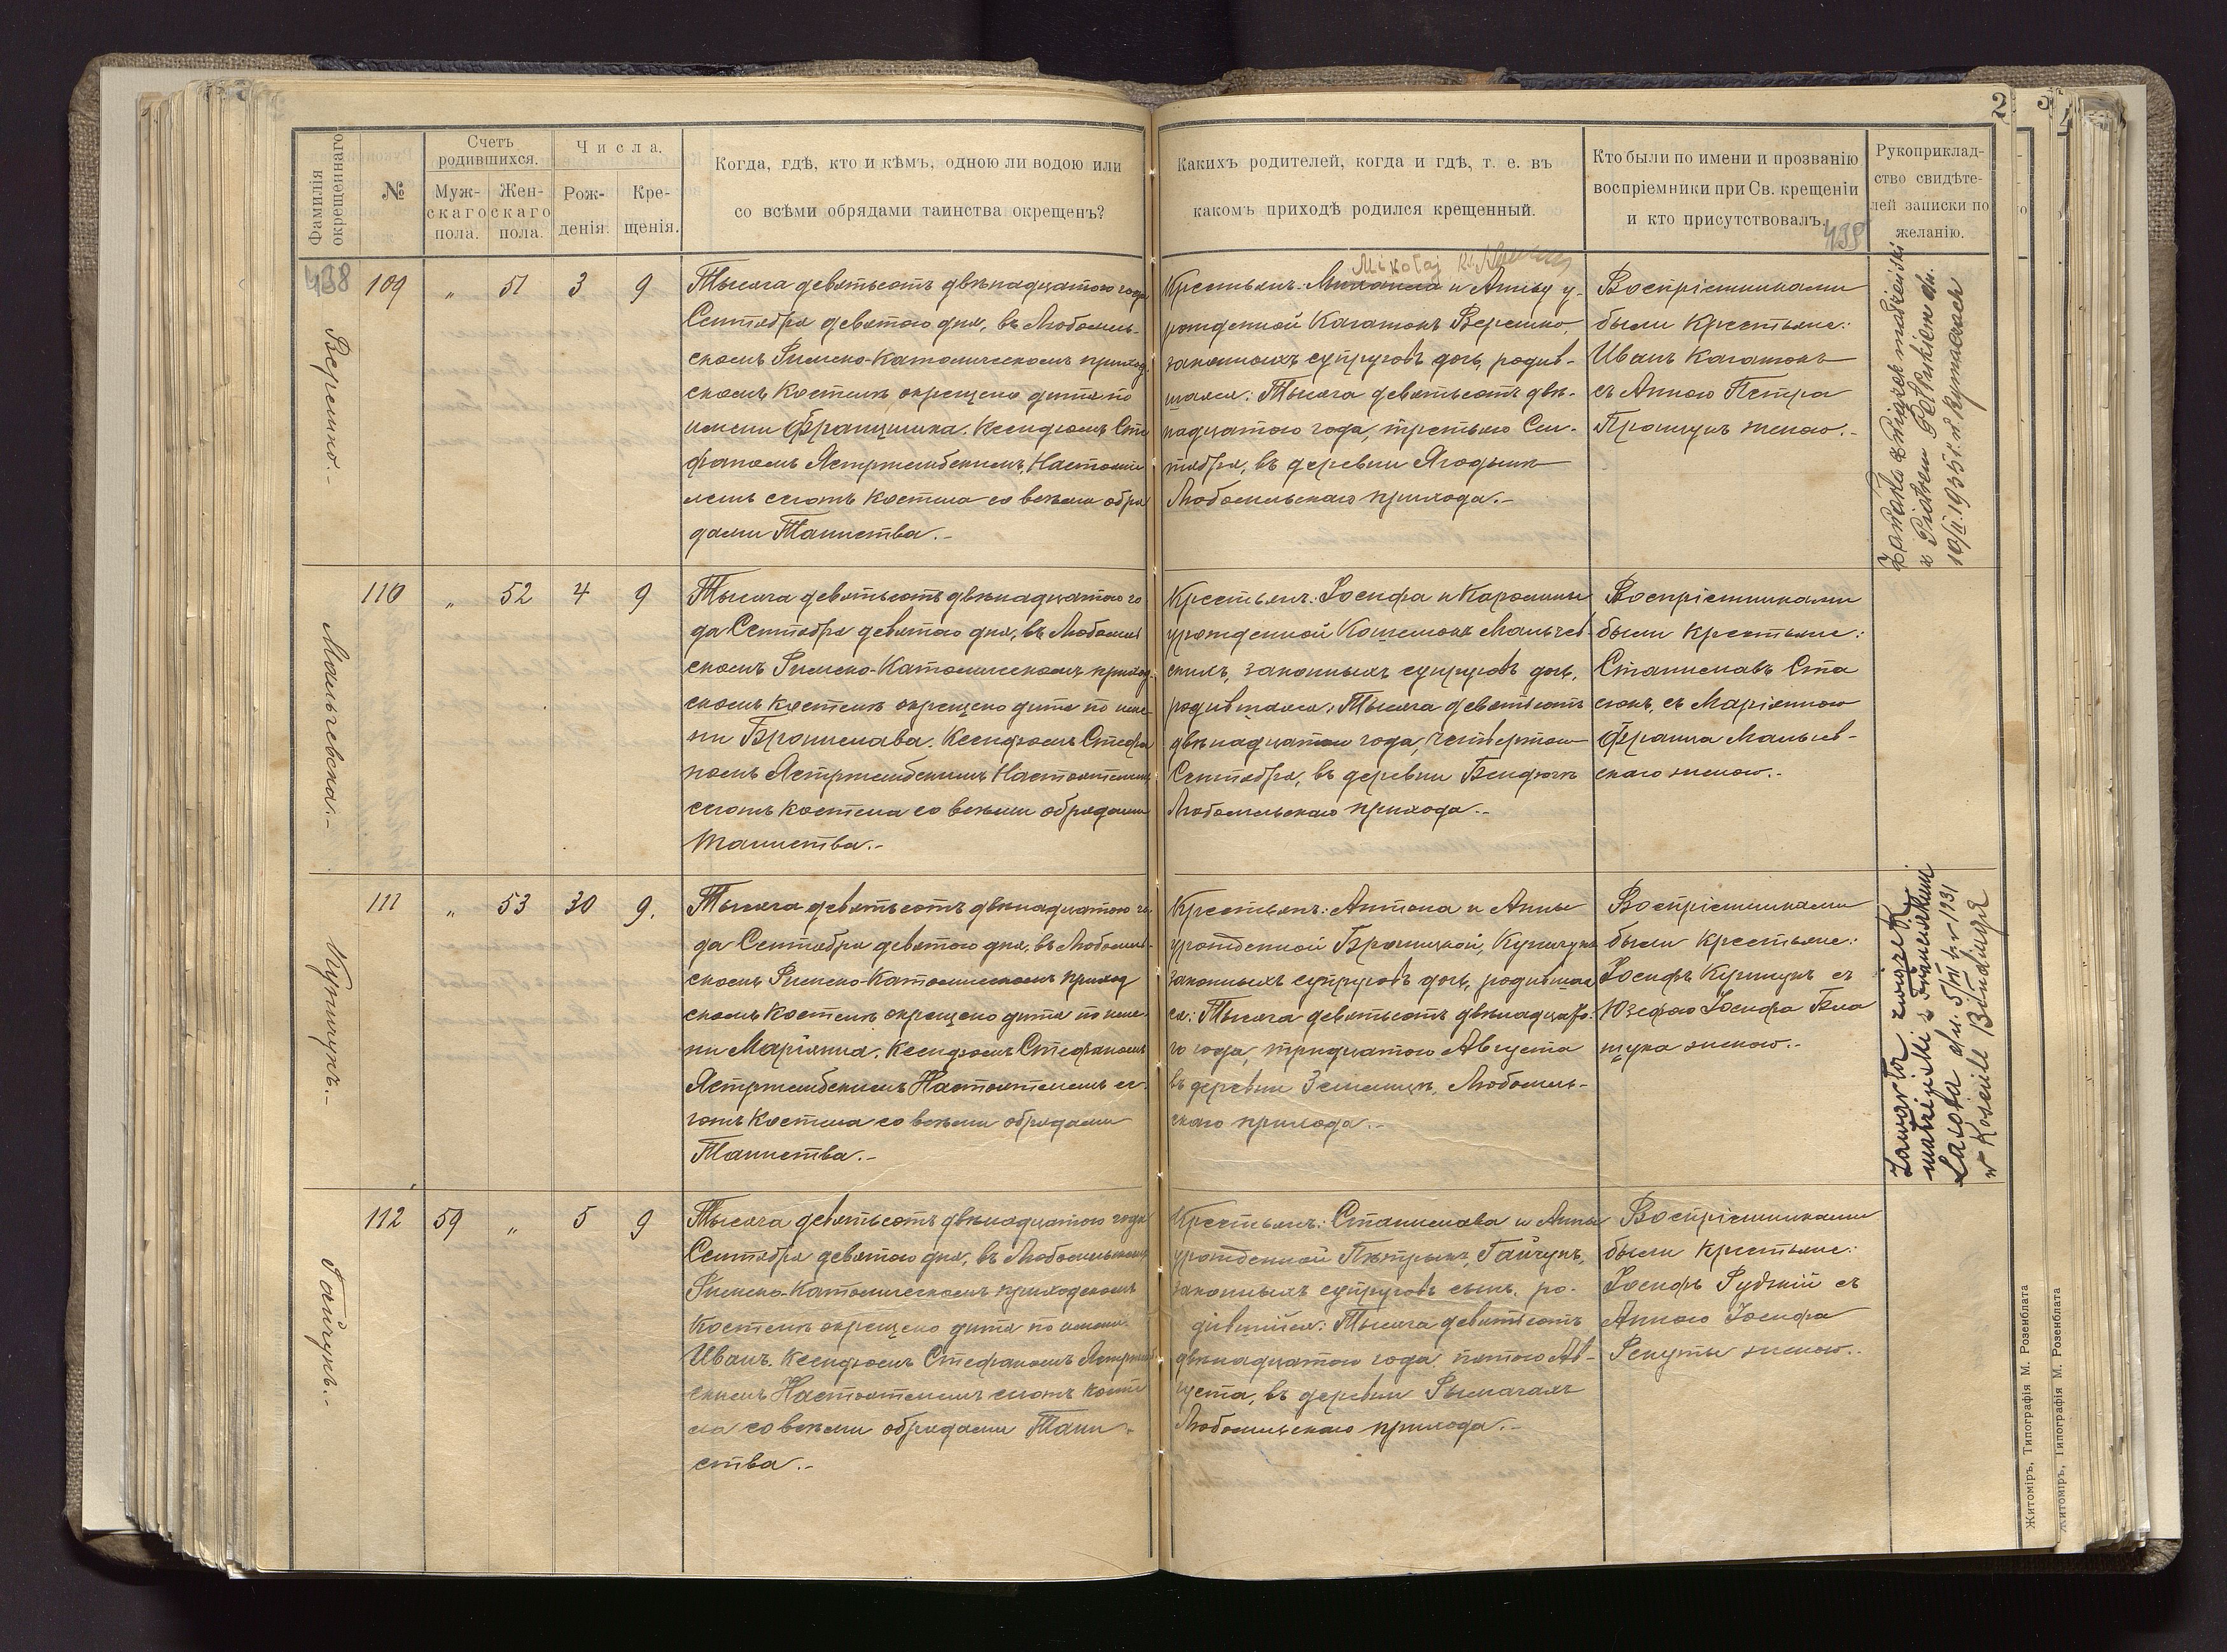 Фамилія окрещеннаго
№
Счетъ родившихся.
Мужскаго пола.
Женскаго пола.
Числа.
Рожденія.
Крещенія.
Когда, гдѣ, кто и кѣмъ, одною ли водою или
со всѣми обрядами таинства окрещенъ?
Какихъ родителей, когда и гдѣ, т. е. въ
какомъ приходѣ родился крещенный.
Кто были по имени и прозванію
воспріемники при Св. крещеніи
и кто присутствовалъ.
Рукоприклад-
ство свидѣте-
лей записки по
желанію.
2
438
439
Верешко.-
109 " 51 3 9
Тысяча девятьсотъ двѣнадцатого года
Сентября девятого дня, въ Любомль-
скомъ Римско-Католическомъ приход-
скомъ Костелѣ окрещено дитя по
имени Францишка. Ксендзомъ Сте
фаномъ Ястржембскимъ, Настояте
лемъ сего Костела со всѣми обря
дами Таинства.-
Mikołaj
Крестьянъ: и Анны у-
рожденной Кагатюкъ Верешко,
законныхъ супруговъ дочь, родив-
шаяся: Тысяча девятьсотъ двѣ-
надцатого года, третьяго Сен-
тября, въ деревни Ягодынѣ
Любомльскаго прихода.-
Воспріемниками
были Крестьяне:
Иванъ Кагатюкъ
съ Анною Петра
Прощукъ женою.-
Zawarła związek małżeński
z Piotrem
10/II.1935 r. w Rymaczach
Мальчевска.-
110 " 52 4 9
Тысяча девятьсотъ двѣнадцатого го
да Сентября девятого дня, въ Любомль
скомъ Римско-Католическомъ приход-
скомъ Костелѣ окрещено дитя по име-
ни Бронислава. Ксендзомъ Стефа
номъ Ястржембскимъ Настоятелемъ
Костела со всѣми обрядами
Таинства.-
Крестьянъ: Іосифа и Каролины
урожденной Мальчев-
скихъ, законныхъ супруговъ дочь,
родившаяся: Тысяча девятьсотъ
двѣнадцатого года, четвертого
Сентября, въ деревни Бендюгѣ
Любомльскаго прихода.-
Воспріемниками
были Крестьяне:
Станиславъ Ста
сюкъ, съ Маріянною
Франца Мальчев-
скаго женою.-
111 " 53 30 9.
Тысяча девятьсотъ двѣнадцатого го-
да Сентября девятого дня, въ Любомль-
скомъ Римско-Католическомъ приход
скомъ Костелѣ окрещено дитя по име-
ни Маріянна. Ксендзомъ Стефаномъ
Ястржембскимъ Настоятелемъ се-
Костела со всѣми обрядами
Таинства.-
Крестьянъ: Антона и Анны
урожденной
законныхъ супруговъ дочь, родившая
ся: Тысяча девятьсотъ двѣнадцато-
го года, тридцатого Августа
въ деревни Землицѣ, Любомль-
скаго прихода.-
Воспріемниками
были Крестьяне:
Іосифъ съ
Юзефою Іосифа
женою.-
Zawarła związek
małżeński z Franciszkiem
Lasota dn. 5/VII br 1931
w Kościele Bindiuga
Гайчукъ.-
112 59 " 5 9
Тысяча девятьсотъ двѣнадцатого года
Сентября девятого дня, въ Любомльскомъ
Римско-Католическомъ приходскомъ
Костелѣ окрещено дитя по имени
Иванъ. Ксендзомъ Стефаномъ Ястржемб
скимъ Настоятелемъ Косте
ла со всѣми обрядами Таин-
ства.-
Крестьянъ: Станислава и Анны
урожденной Пѣтрыкъ, Гайчукъ,
законныхъ супруговъ сынъ, ро-
дившійся: Тысяча девятьсотъ
двѣнадцатого года, пятого Ав-
густа, въ деревни Рымачахъ
Любомльскаго прихода.-
Воспріемниками
были Крестьяне:
Іосифъ Рудзкій съ
Анною Іосифа
женою.-
Житоміръ, Типографія М. Розенблата
Житоміръ, Типографія М. Розенблата